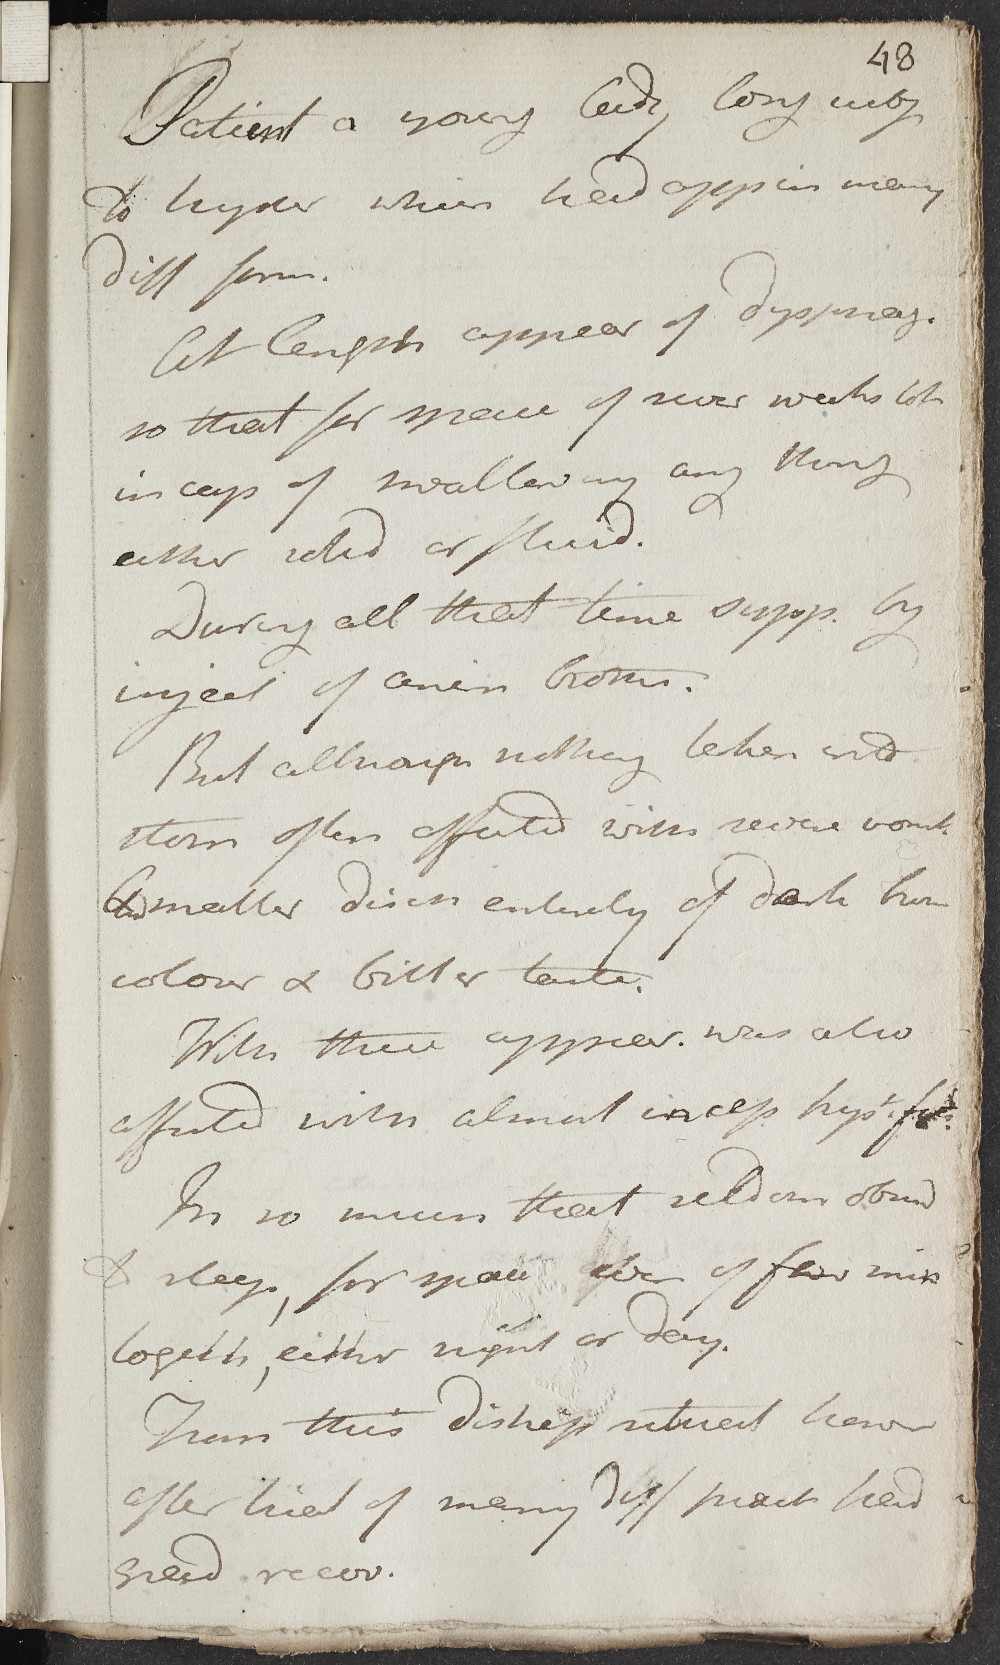 48
Patient a young lady long subj
to hyster which had appin many
diff form.
At length appear of dysphag.
so that for space of sever weeks tot
incap of swallowing any thing
either solid or fluid.
During all that time supp. by
inject of anim broths.
But although nothing taken into
stom often affected with severe vomit.
& matter disch entirely of dark brow
colour & bitter taste.
With these appear. was also
affected with almost incess hyst. fits.
In so much that seldom obtind
to sleep, for space even of few min
togeth, either night or day.
From this distress situat howr
after trial of many diff pract had
grad recov.